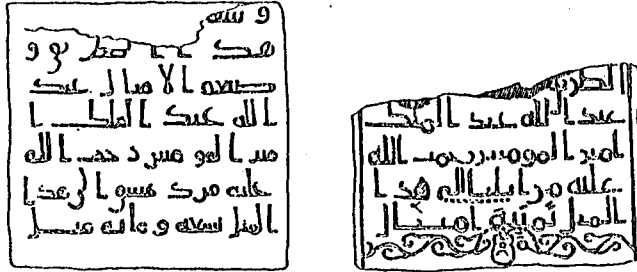 هذا الطريق و
صنعة الاميال عبد
الله عبد الملك ا
مير المومنين رحمت الله
عليه من دمشق الى هذا
الميل تسعة ومائة ميل
الطريق
عبد الله عبد الملك
امير المومنين رحمت الله
عليه من ايليا الى هذا
الميل ثمنية اميال